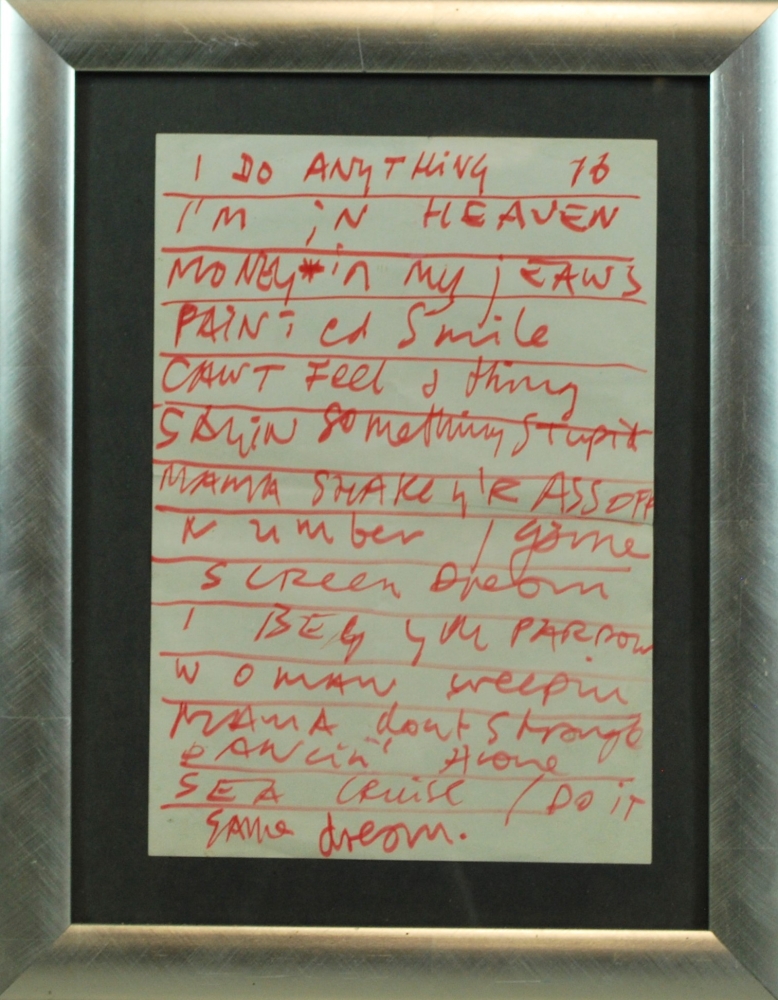 I DO ANYTHING 76
I'M iN HEAVEN
MONEY*in my jEANS
PAINTed Smile
CANT Feel a thing
SAYiN SOmething STupid
MAMA SHAKE y'R ASS OFF
Number / game
SCReen Dream
I BEG yUR PARDON
WOMAN weepin
MAMA dont
DANcin' Alone
SEA CRuise / DO iT
SAMe dream.